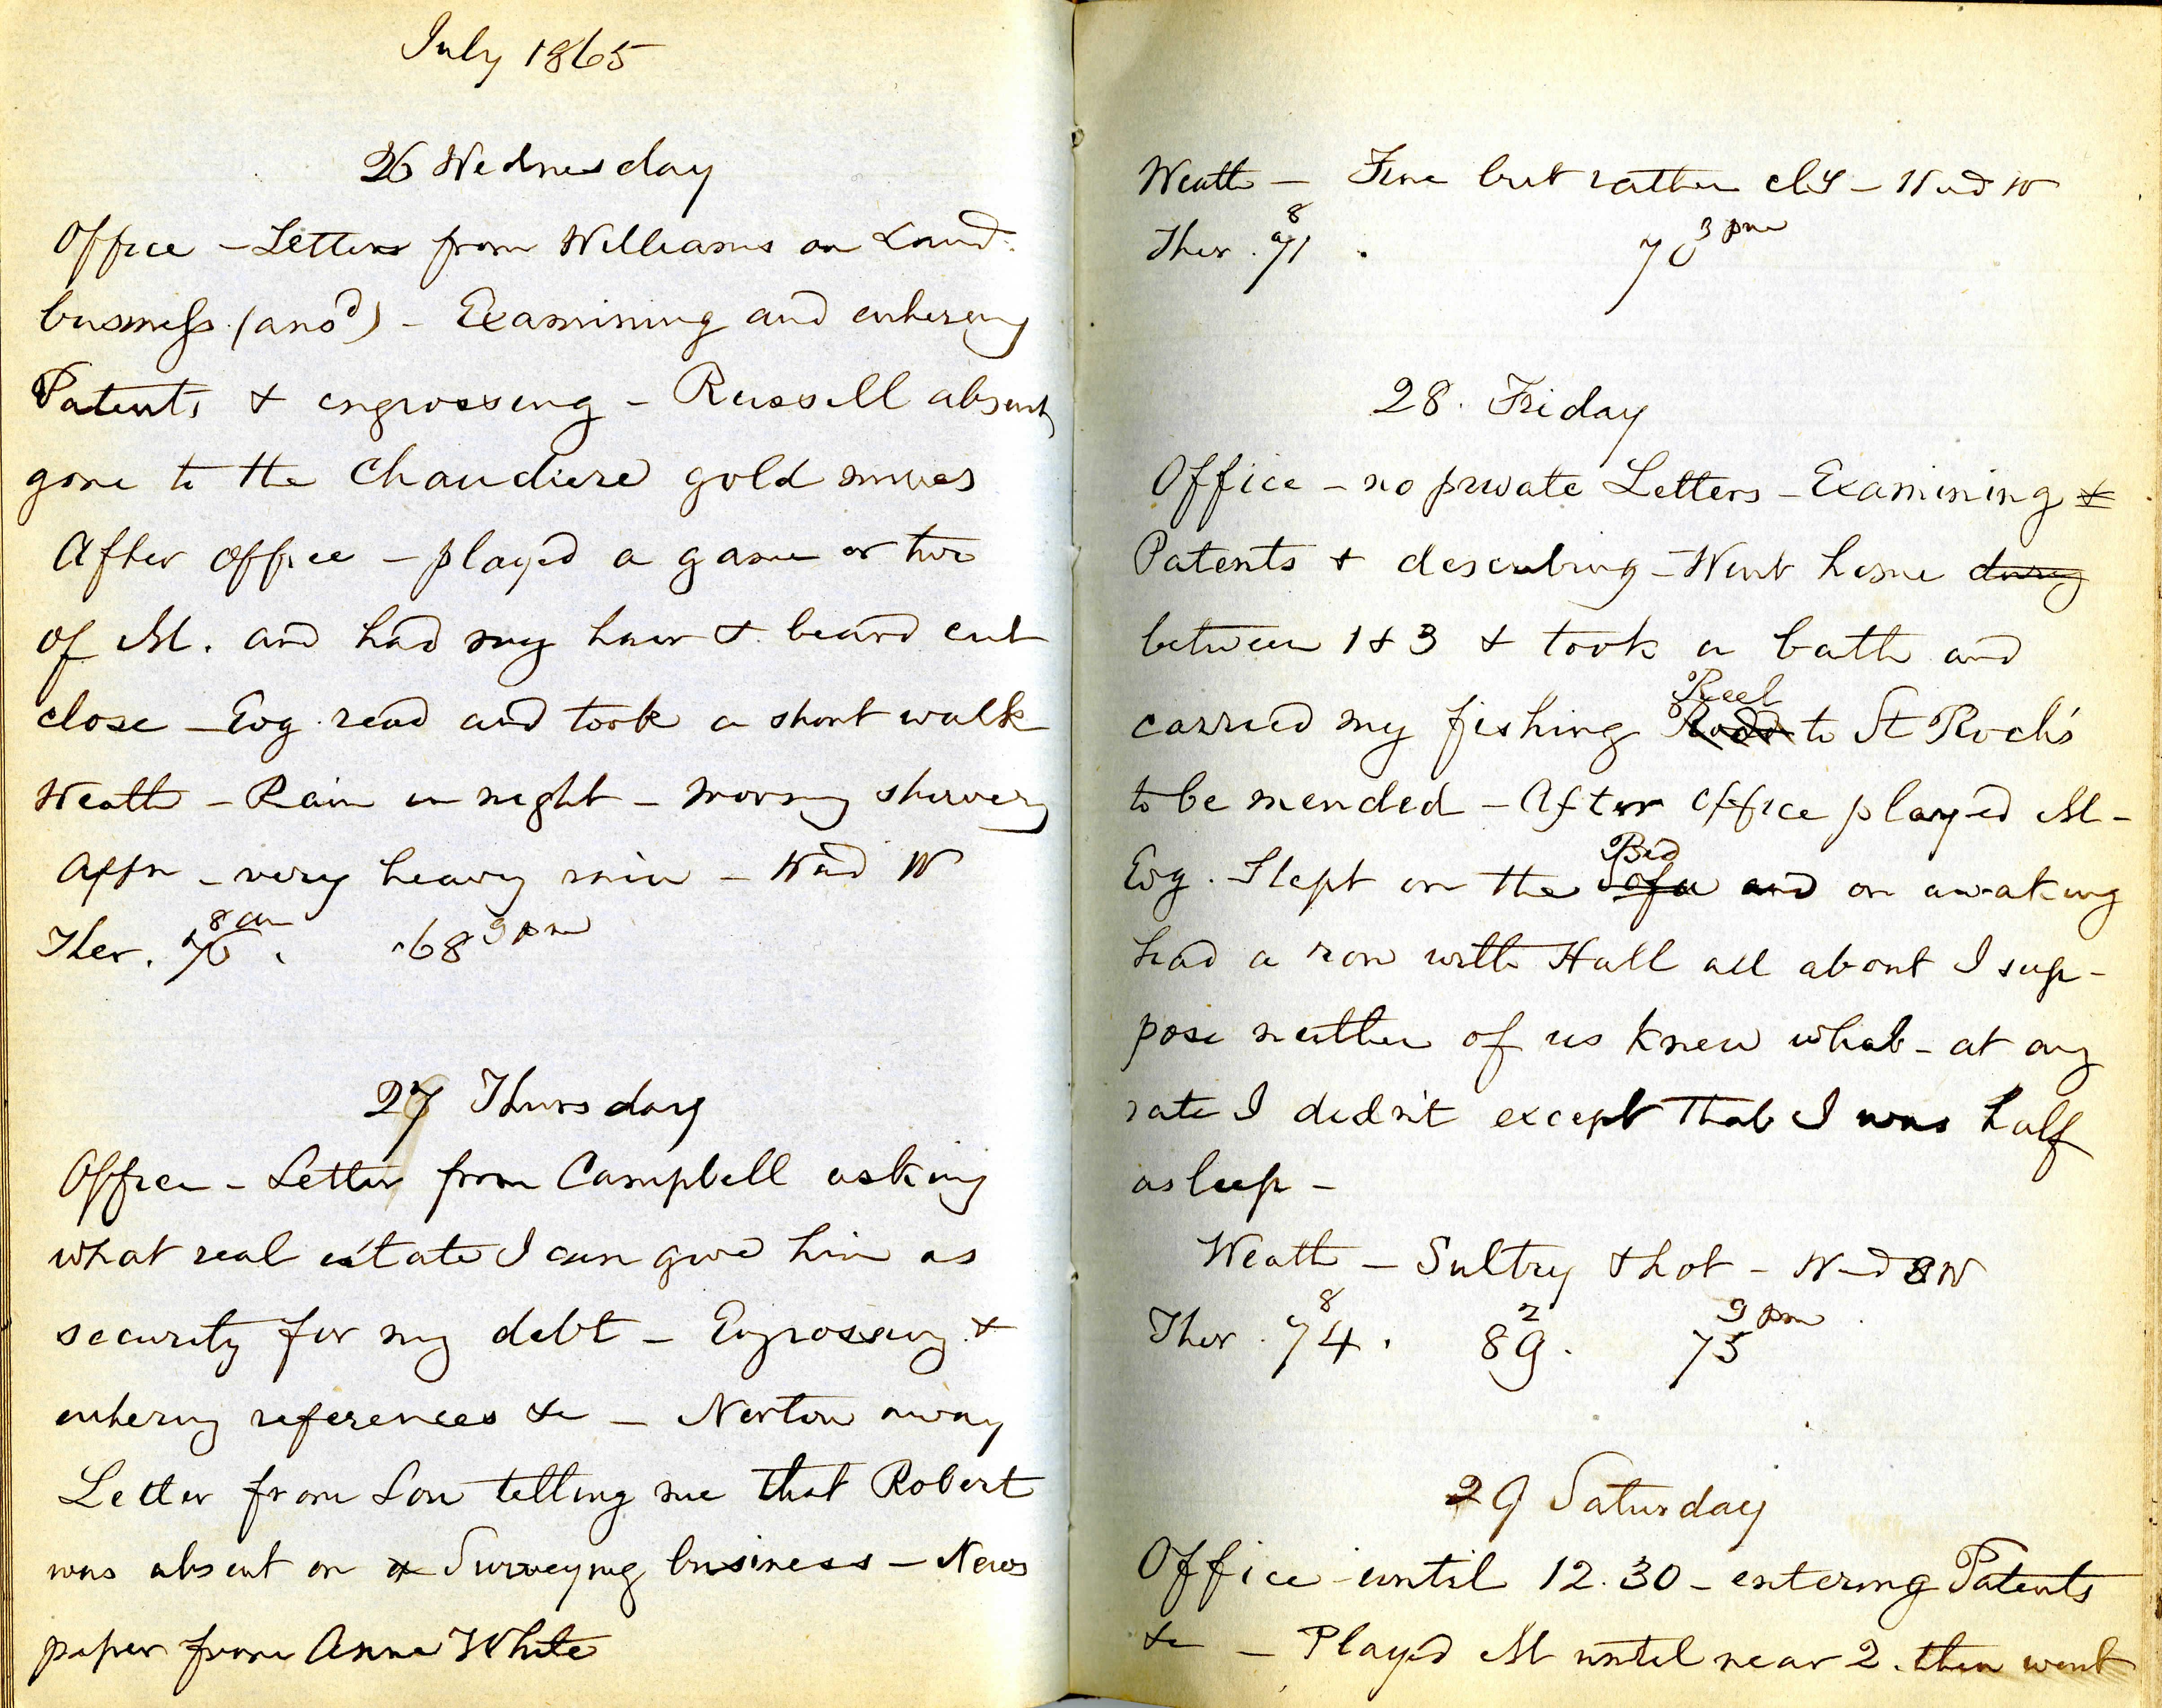 July 1865
26 Wednesday
Office - Letters from Williams on Land
business (ansd) - Examining and entering
Patents & engrossing - Russell absent
gone to the Chaudiere gold mines
After office - played a game or two
of M. and had my hair & beard cut
close - Evg. read and took a short walk
Weath - Rain in night - morning showery
Aftn - very heavy rain - Wind W
Ther. 70 8 am . 68 9 pm
27 Thursday
Office - Letter from Campbell asking
what real estate I can give him as
security for my debt - Engrossing &
entering references &c - Norton away
Letter from Lou telling me that Robert
was absent on a Surveying business - News
paper from Anna White
Weath - Fine but rather cldy - Wind W
Ther. 71 8 . 70 3 pm
28. Friday
Office - no private Letters - Examining &
Patents & describing - Went home during
between 1 & 3 & took a bath and
carried my fishing Rods Reel to St Roch's
to be mended - After office played M -
Evg. Slept on the Sofa Bed and on awaking
had a row with Hall all about I sup-
pose neither of us knew what - at any
rate I didn't except that I was half
asleep -
Weath - Sultry & hot - Wind SW
Ther. 74 8 . 89 2 . 75 9 pm
29 Saturday
Office until 12.30 - entering Patents
&c - Played M until near 2. then went